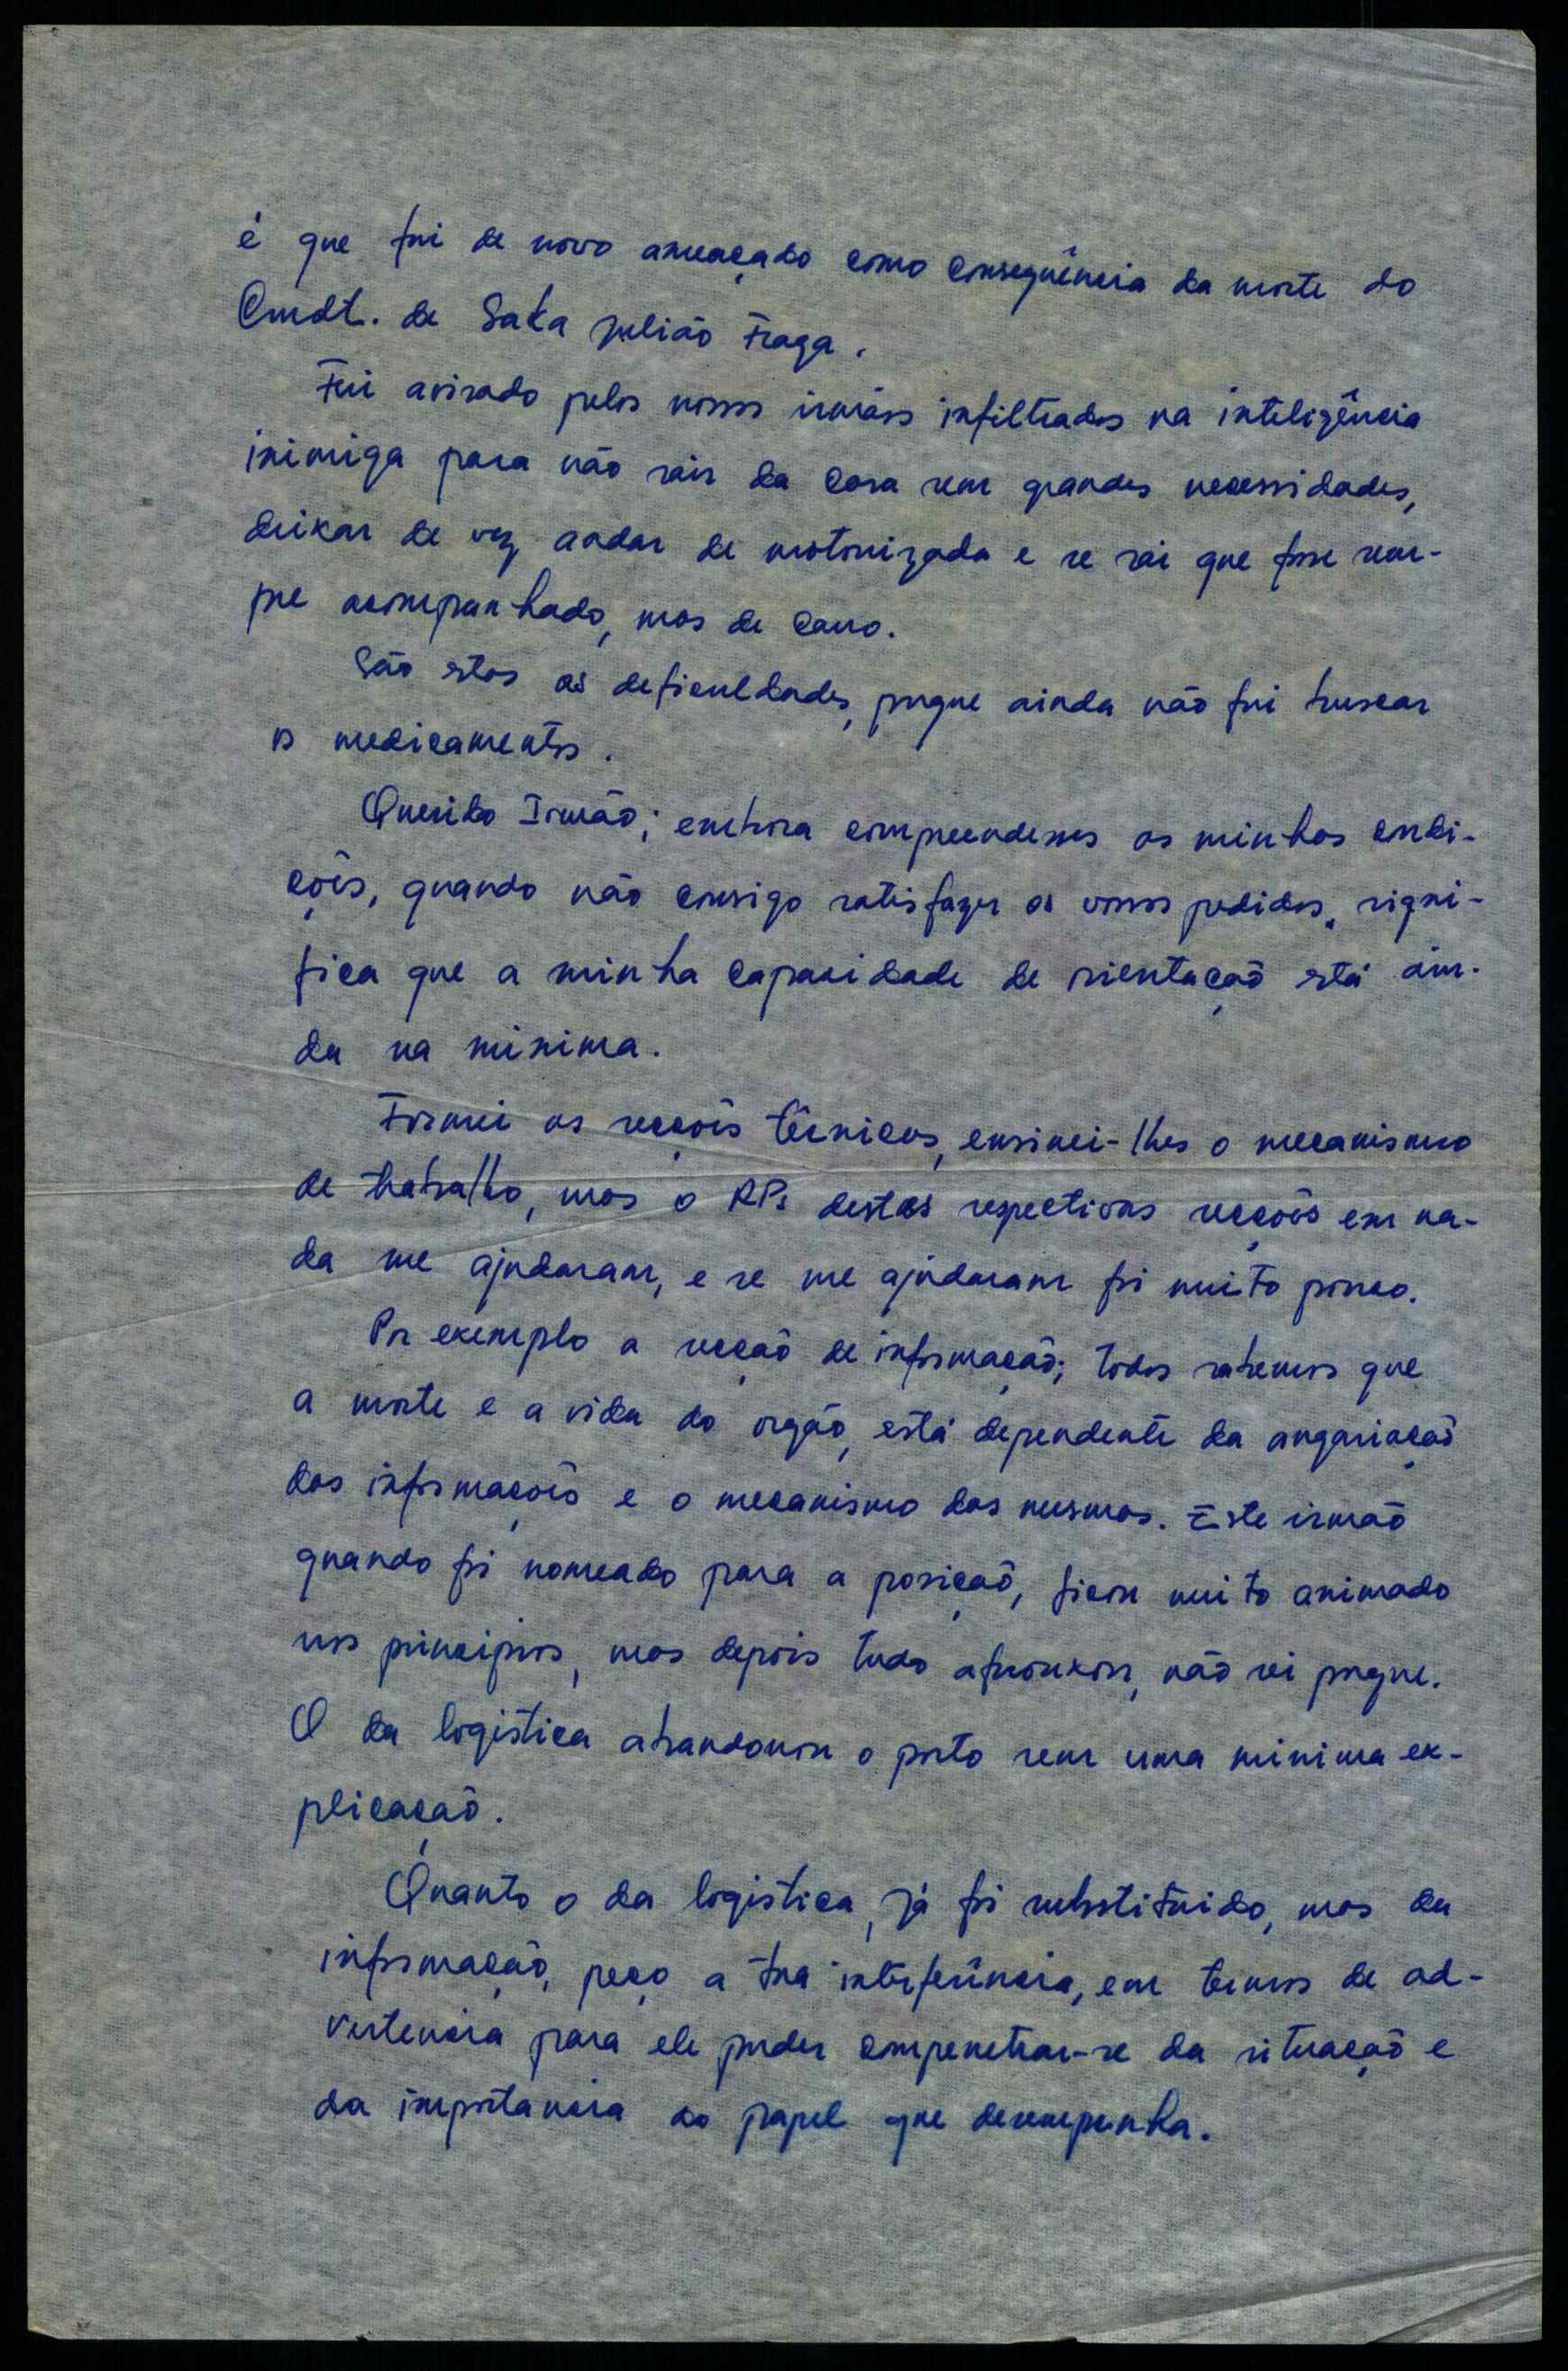 é que fui de novo ameaçado como consequência da morte do
Cmdt. de Saka Julião Fraga.
Fui avisado pelos nossos irmãos infiltrados na inteligência
inimiga para não sair da casa sem grandes necessidades,
deixar de vez andar de motorizada e se sai que fosse sem-
pre acompanhado, mas de carro.
São estas as deficuldades, porque ainda não fui buscar
os medicamentos.
Querido Irmão; embora compreendesses as minhas condi-
ções, quando não consigo satisfazer os vossos pedidos, signi-
fica que a minha capacidade de orientação está ain-
da na minima.
Formei as secções técnicas, ensinei-lhes o mecanismo
de trabalho, mas o RPs destas respectivas secções em na-
da me ajudaram, e se me ajudaram foi muito pouco.
Por exemplo a secção de informação; todos sabemos que
a morte e a vida do orgão, está dependente da angariação
das informações e o mecanismo das mesmas. Este irmão
quando foi nomeado para a posição, ficou muito animado
nos principios, mas depois tudo afrouxou, não sei porque.
O da logistica abandonou o posto sem uma minima ex-
plicação.
Quanto o da logistica, já foi substituido, mas da
informação, peço a tua interferência, em termos de ad-
vertencia para ele puder compenetrar-se da situação e
da importancia do papel que desempenha.